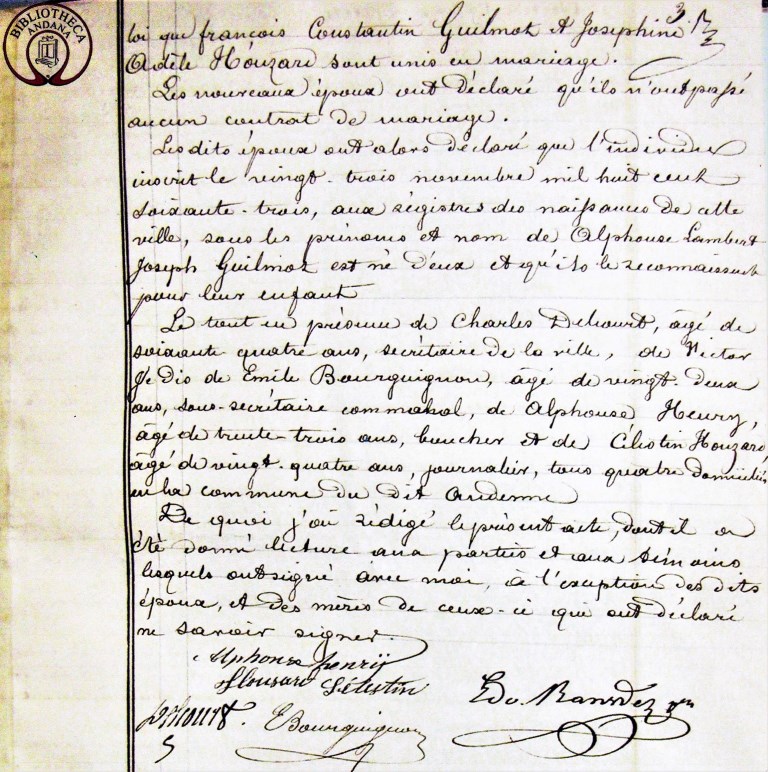 BIBLIOTHECA
ANDANA
3.
loi que françois Constantin Guilmot et Josephine
Adèle Houzard sont unis en mariage.
Les nouveaux époux ont déclaré qu'ils n'ont passé
aucun contrat de mariage.
Les dits époux ont alors déclaré que l'individu
inscrit le vingt-trois novembre mil huit cent
soixante-trois, aux régistres des naissances de cette
ville, sous les prénoms et nom de Alphonse Lambert
Joseph Guilmot est né d'eux et qu'ils le reconnaissent
pour leur enfant
Le tout en présence de Charles Delcourt, âgé de
soixante quatre ans, secrétaire de la ville, de Victor
Je dis de Emile Bourguignon, âgé de vingt-deux
ans, sous-secrétaire communal, de Alphonse Henry,
âgé de trente-trois ans, boucher et de Célestin Houzard,
âgé de vingt-quatre ans, journalier, tous quatre domiciliés
en la commune du dit Andenne
De quoi j'ai rédigé le présent acte, dont il a
été donné lecture aux parties et aux témoins
lesquels ont signé avec moi, à l'exception des dits
époux, et des mères de ceux-ci qui ont déclaré
ne savoir signer.
Alphonse henrÿ
Houzard Célestin
Delcourt. EBourguignon